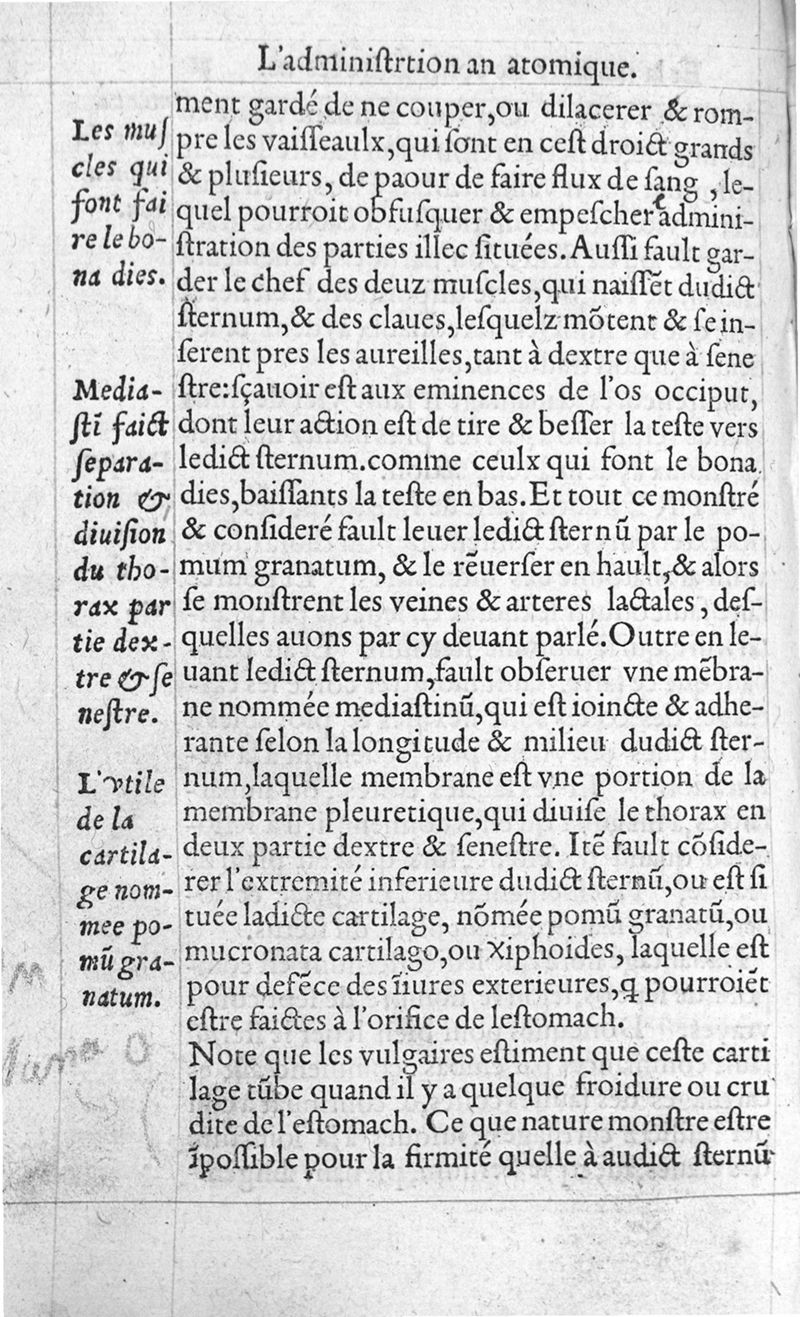 L'adminiſtrtion an atomique.
Les muſ
cles qui
font fai
re le bo-
na dies.
Media-
ſtĩ faict
ſepara-
tion &
diuiſion
du tho-
rax par
tie dex-
tre & ſe
neſtre.
L'vtile
de la
cartila-
ge nom-
mee po-
mũ gra-
natum.
ment gardé de ne couper,ou dilacerer & rom-
pre les vaiſſeaulx,qui ſont en ceſt droict grands
& pluſieurs, de paour de faire flux de ſang , le-
quel pourroit obfuſquer & empeſcher l'admini-
ſtration des parties illec ſituées. Auſſi fault gar-
der le chef des deuz muſcles,qui naiſſẽt dudict
ſternum,& des claues,leſquelz mõtent & ſe in-
ſerent pres les aureilles,tant à dextre que à ſene
ſtre:ſçauoir eſt aux eminences de l'os occiput,
dont leur action eſt de tire & beſſer la teſte vers
ledict ſternum.comme ceulx qui font le bona
dies,baiſſants la teſte en bas.Et tout ce monſtré
& conſideré fault leuer ledict ſternũ par le po-
mum granatum, & le rẽuerſer en hault,& alors
ſe monſtrent les veines & arteres lactales , deſ-
quelles auons par cy deuant parlé.Outre en le-
uant ledict ſternum,fault obſeruer vne mẽbra-
ne nommée mediaſtinũ,qui eſt ioincte & adhe-
rante ſelon la longitude & milieu dudict ſter-
num,laquelle membrane eſt vne portion de la
membrane pleuretique,qui diuiſe le thorax en
deux partie dextre & ſeneſtre. Itẽ fault cõſide-
rer l'extremité inferieure dudict ſternũ,ou eſt ſi
tuée ladicte cartilage, nõmée pomũ granatũ,ou
mucronata cartilago,ou Xiphoides, laquelle eſt
pour defẽce des ĩiures exterieures,q pourroiẽt
eſtre faictes à l'orifice de leſtomach.
Note que les vulgaires eſtiment que ceſte carti
lage tũbe quand il y a quelque froidure ou cru
dite de l'eſtomach. Ce que nature monſtre eſtre
ĩpoſſible pour la firmité quelle à audict ſternũ